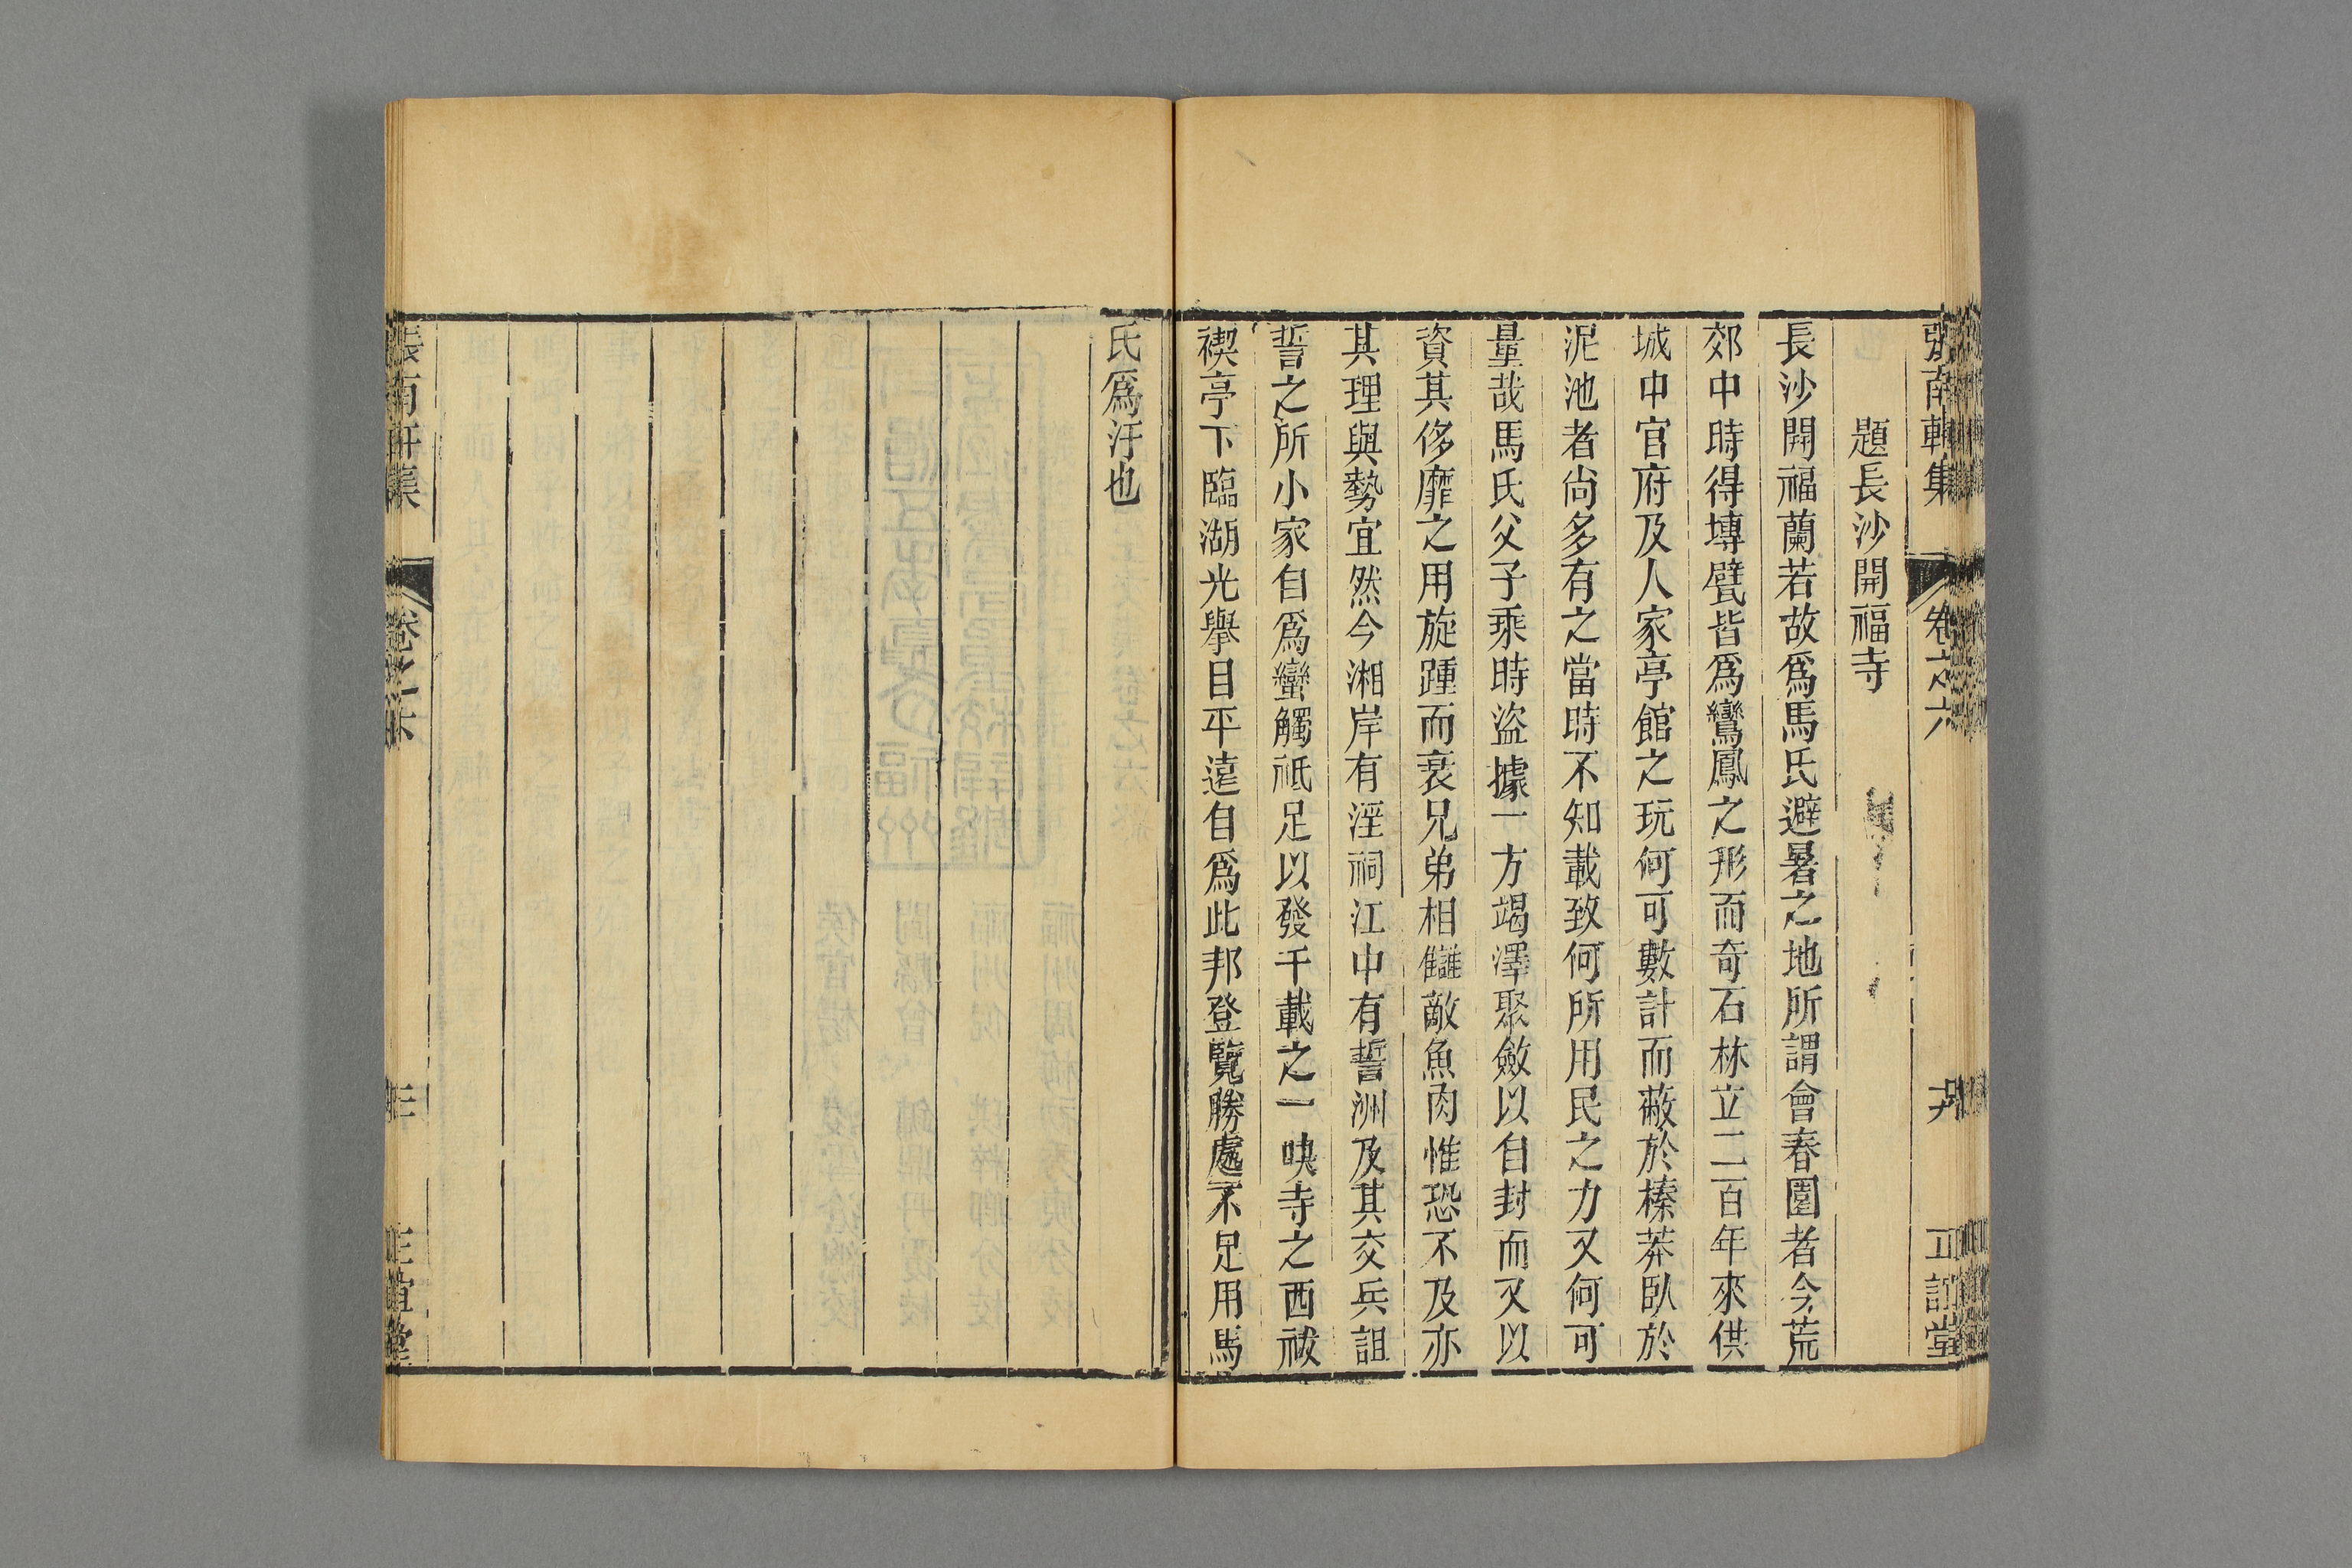 張南軒集 卷之六 正誼堂
題長沙開福寺
長沙開福蘭若故爲馬氏避暑之地所謂會春園者今荒
郊中時得塼甓皆爲鸞鳳之形而奇石林立二百年來供
城中官府及人家亭館之玩何可數計而蔽於榛莽臥於
泥池者尙多有之當時不知載致何所用民之力又何可
量哉馬氏父子乘時盜據一方竭澤聚斂以自封而又以
資其侈靡之用旋踵而衰兄弟相讎敵魚肉惟恐不及亦
其理與勢宜然今湘岸有淫祠江中有誓洲及其交兵詛
誓之所小家自爲蠻觸祗足以發千載之一吷寺之西祓
禊亭下臨湖光擧目平遠自爲此邦登覽勝處不足用馬
氏爲汙也
張南軒集 正誼堂